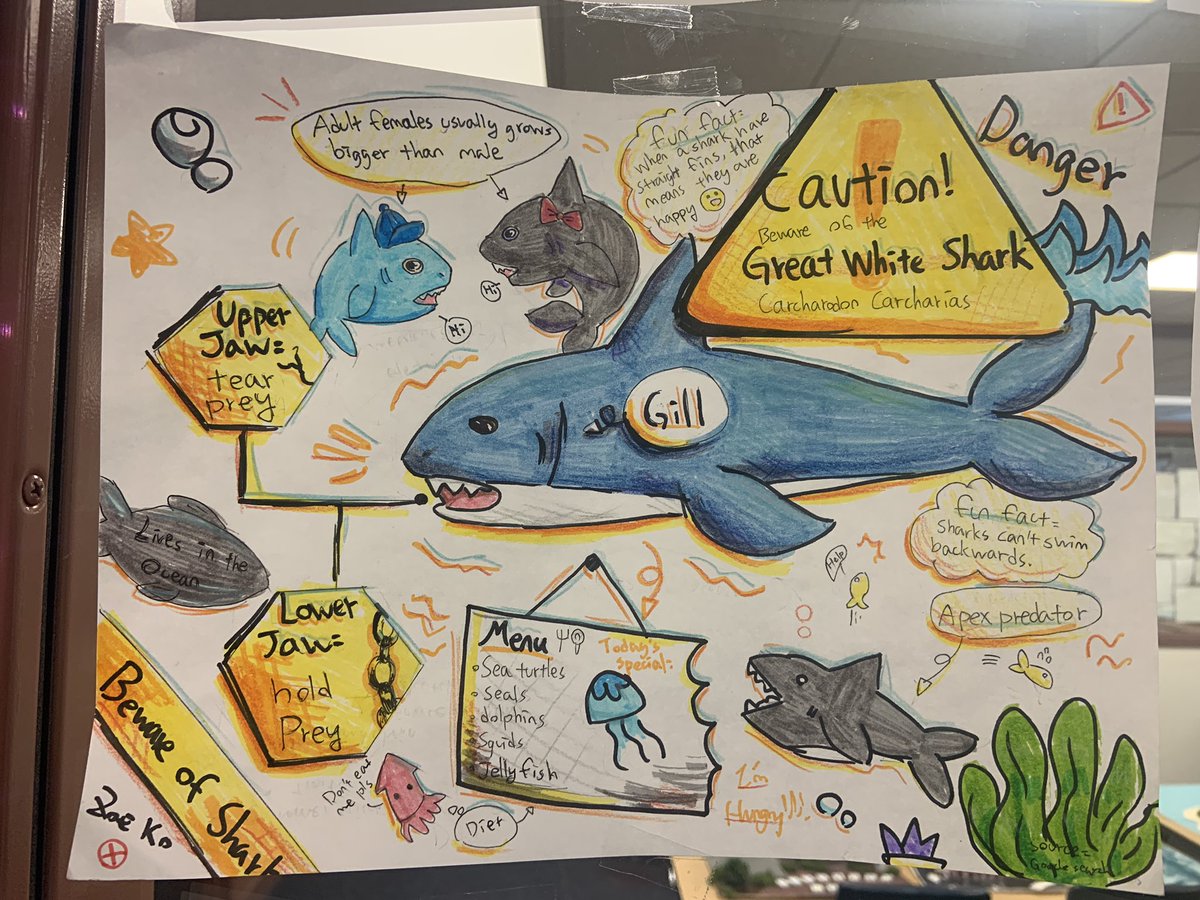 Adult females usually grows
bigger than male
fun fact=
when a shark have
straight fins, that
means they are
happy
Caution!
Beware of the
Great White Shark
Carcharodon Carcharias
Danger
!
Hi
Hi
Upper
Jaw=
tear
prey
Gill
Lives in the
Ocean
fun fact=
sharks can't swim
backwards.
Help
Apex predator
Lower
Jaw=
hold
Prey
Menu
Today's
Special:
Sea turtles
Seals
dolphins
Squids
Jellyfish
Don't eat
me pls
Diet
I'm
Hungry!!!
Beware of Shark
Zoe Ko
Source=
Google search